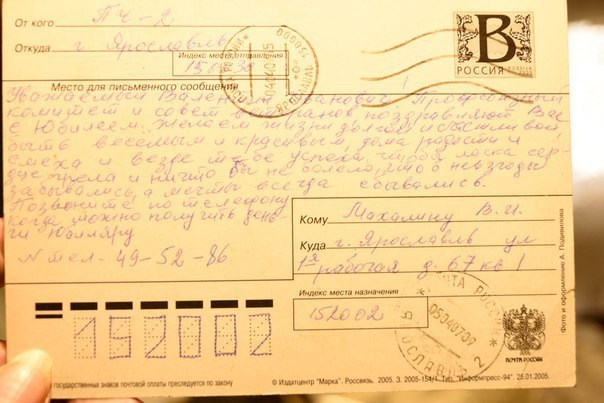 От кого ПЧ-2
Откуда г. Ярославль
Индекс места отправления
150030
Место для письменного сообщения
Уважаемый Валентин Иванович! Профсоюзный
комитет и совет ветеранов поздравляют Вас
с Юбилеем. Желаем жизни долгой и счастливой,
быть веселым и красивым, дома радости и
смеха и везде тебе успеха чтобы ласка сер-
дце грела и ничто бы не болело, чтоб невзгоды
забывались, а мечты всегда сбывались.
Позвоните по телефону
когда можно получить день-
ги Юбиляру
N тел - 49-52-86
В
РОССИЯ
Кому Махалину В.И.
Куда г. Ярославль ул
1я рабочая д. 67 кв 1
Индекс места назначения
152002
192002
ПОЧТА РОССИИ
05040709
2
ПОЧТА РОССИИ
Фото и оформление А. Подивилова
государственных знаков почтовой оплаты преследуется по закону
© Издатцентр "Марка". Россвязь. 2005. З. 2005-154/1. Тип. "Информпресс-94" 25.01.2005.